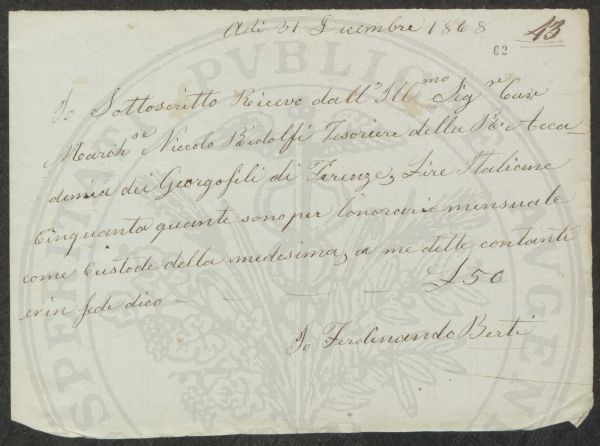 Adi 31 Dicembre 1868 43
62
Io Sottoscritto Ricevo dall' Ill.mo Sig.re Cav.
March.se Niccolo Ridolfi Tesoriere della R. Acca=
demia dei Georgofili di Firenze, Lire Italiane
Cinquanta quante sono per l'onorario mensuale
come Custode della medesima, a me dette contanti
e in fede dico — — — — £ 50
Io Ferdinando Berti
PROSPERITATI PUBLICAE AUGENDAE